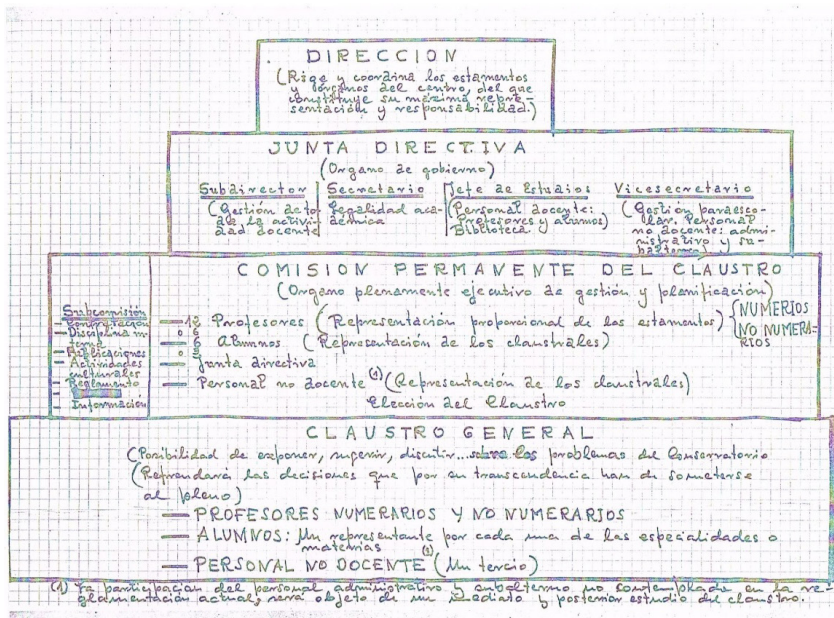 DIRECCION
(Rige y coordina los estamentos
y órganos del centro, del que
constituye su máxima repre-
sentación y responsabilidad.)
JUNTA DIRECTIVA
(Organo de gobierno)
Subdirector
(Gestión de to-
da la activi-
dad docente)
Secretario
Legalidad aca-
démica
Jefe de Estudios
(Personal docente:
Profesores y alumnos)
Biblioteca
Vicesecretario
(Gestión paraesco-
lar. Personal
no docente: admi-
nistrativo y su-
balterno)
COMISION PERMANENTE DEL CLAUSTRO
(Organo plenamente ejecutivo de gestión y planificación)
Subcomisión
— Contratación
— Disciplina in-
terna
— Publicaciones
— Actividades
culturales
— Reglamento
— Información
— Profesores (Representación proporcional de los estamentos) { NUMERIOS
NO NUMERA-
RIOS
— 6 Alumnos (Representación de los claustrales)
— Junta directiva
— Personal no docente (1) (Representación de los claustrales)
Elección del Claustro
CLAUSTRO GENERAL
(Posibilidad de exponer, sugerir, discutir... sobre los problemas del Conservatorio
(Refrendará las decisiones que por su transcendencia han de someterse
al pleno)
— PROFESORES NUMERARIOS Y NO NUMERARIOS
— ALUMNOS: Un representante por cada una de las especialidades o
materias
— PERSONAL NO DOCENTE (1) (Un tercio)
(1) La participación del personal administrativo y subalterno no contemplado en la re-
glamentación actual, será objeto de un inmediato y posterior estudio del claustro.